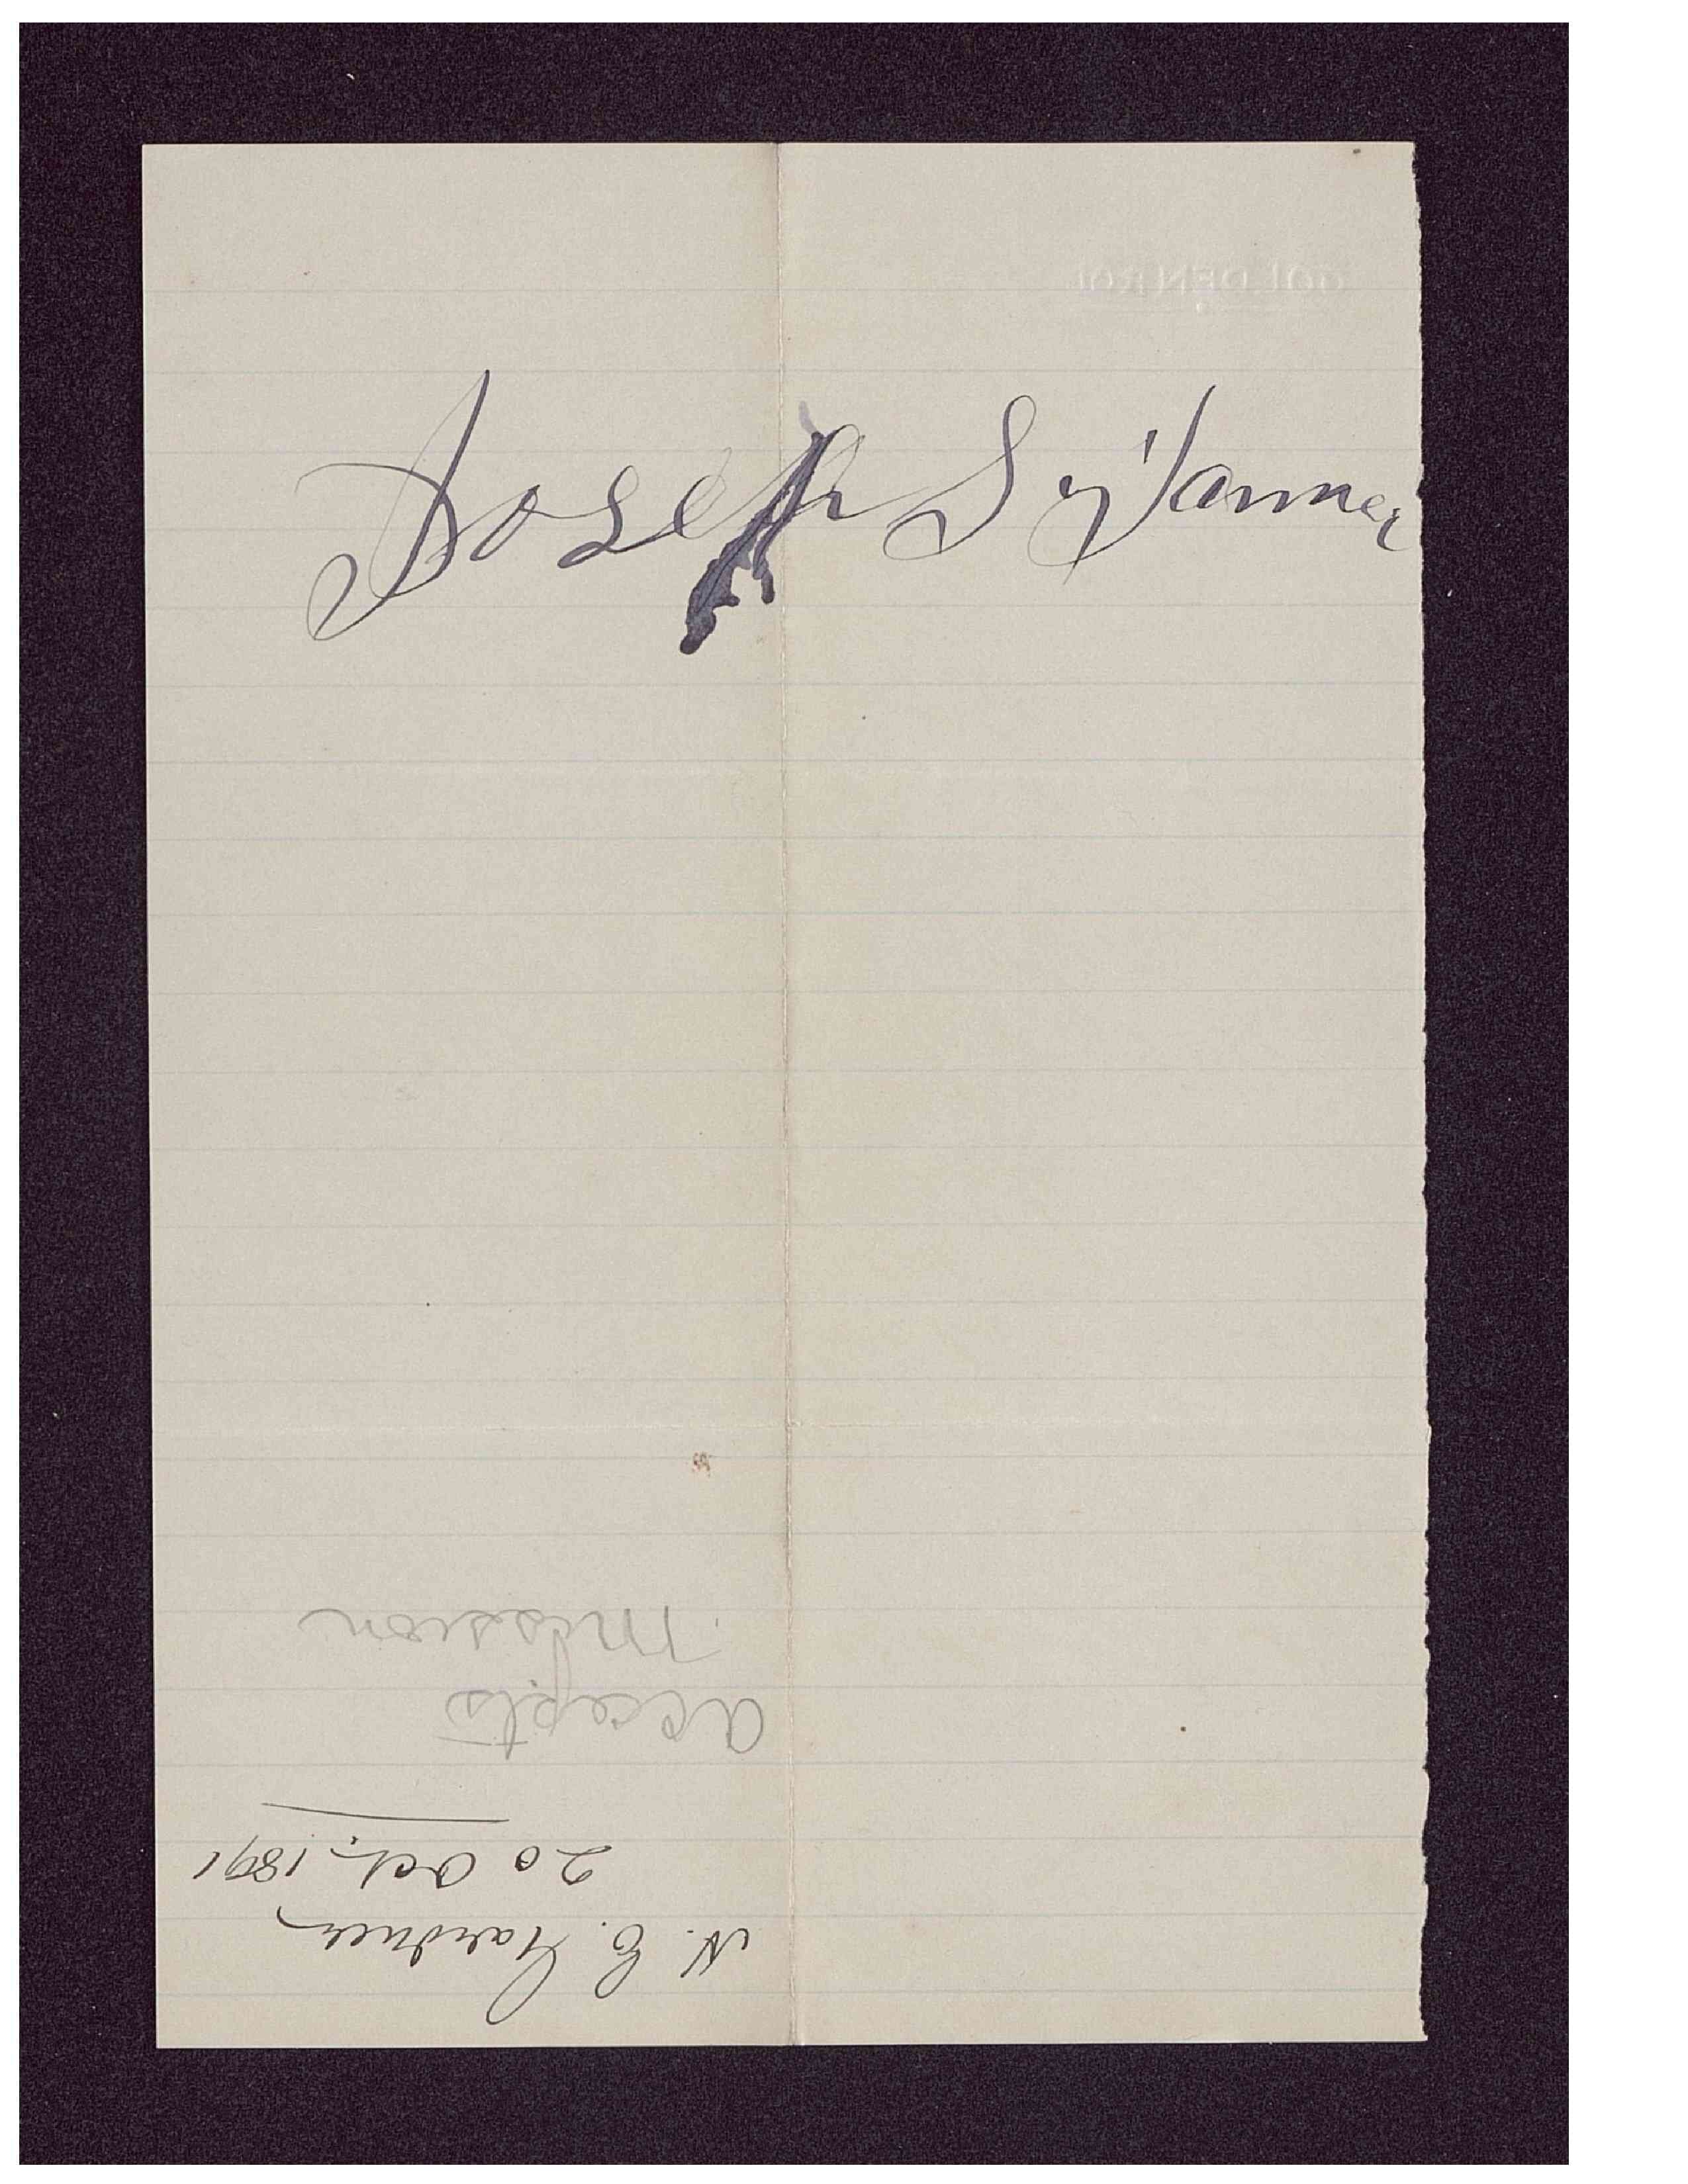 Joseph S Tanner
N. C. Gardner
20 Oct. 1891
accepts
mission